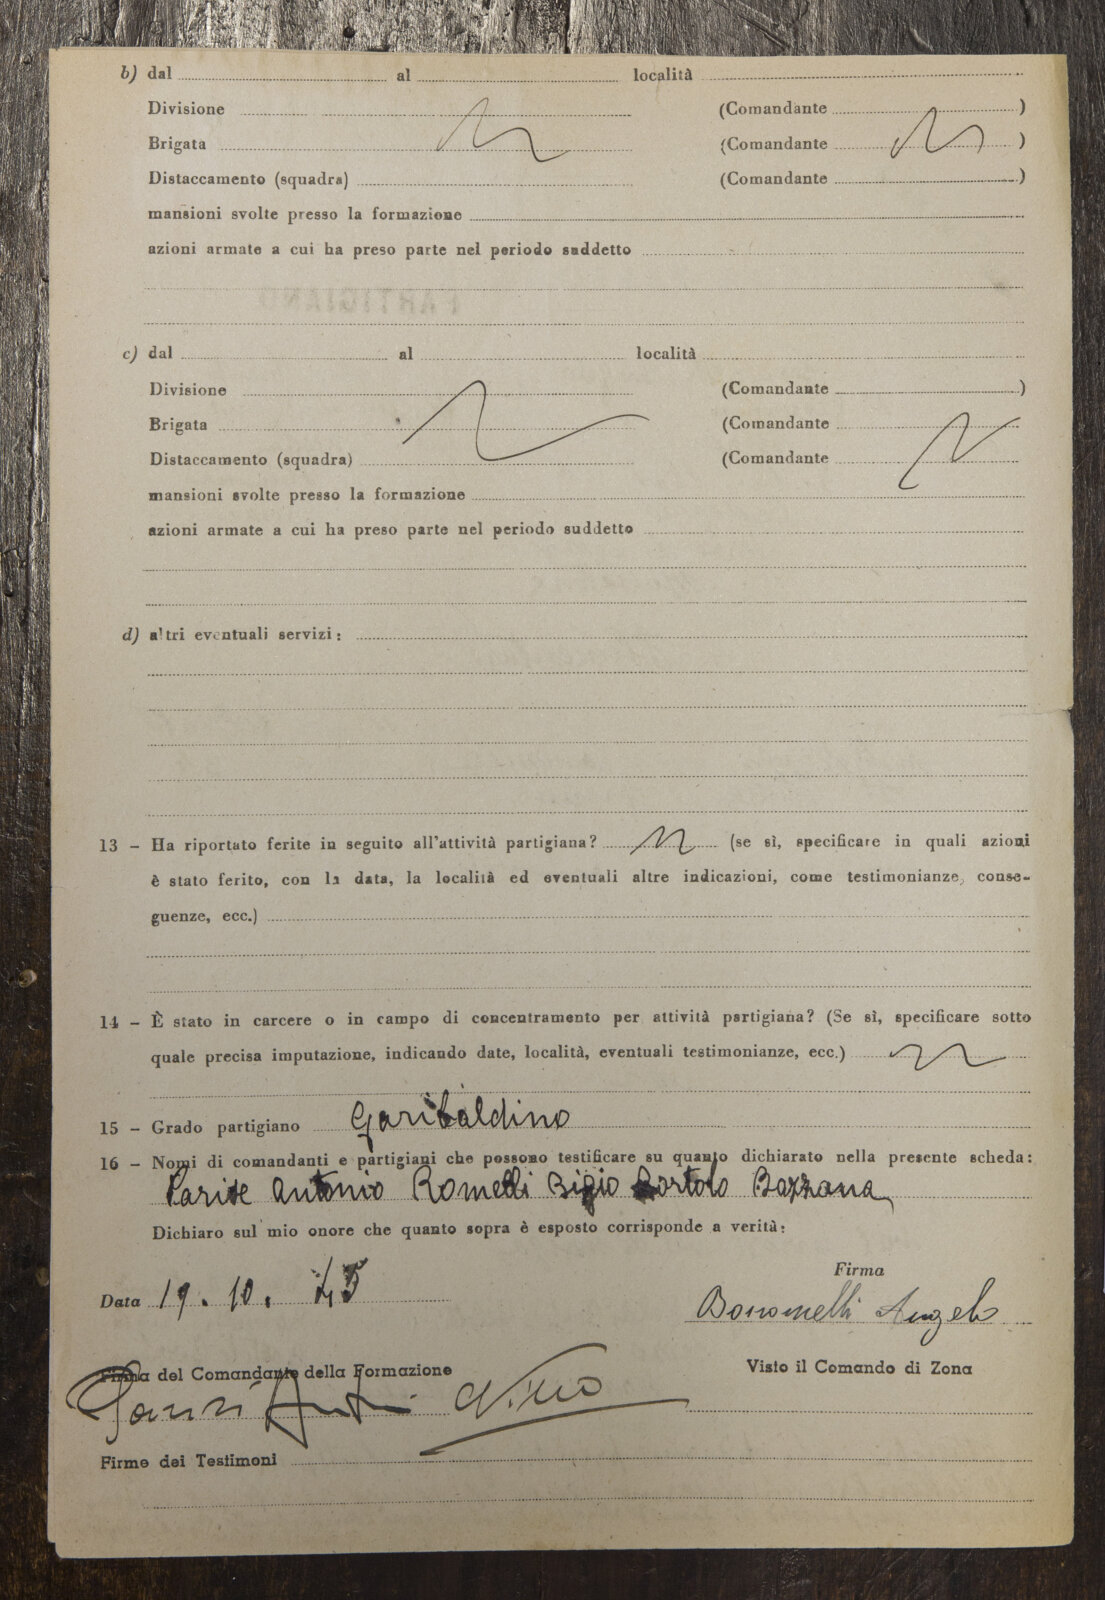 b) dal al località
Divisione (Comandante )
Brigata (Comandante )
Distaccamento (squadra) (Comandante )
mansioni svolte presso la formazione
azioni armate a cui ha preso parte nel periodo suddetto
PARTIGIANO
c) dal al località
Divisione (Comandante )
Brigata (Comandante
Distaccamento (squadra) (Comandante
mansioni svolte presso la formazione
azioni armate a cui ha preso parte nel periodo suddetto
d) altri eventuali servizi:
13 – Ha riportato ferite in seguito all'attività partigiana? (se sì, specificare in quali azioni
è stato ferito, con la data, la località ed eventuali altre indicazioni, come testimonianze, conse-
guenze, ecc.)
14 – È stato in carcere o in campo di concentramento per attività partigiana? (Se sì, specificare sotto
quale precisa imputazione, indicando date, località, eventuali testimonianze, ecc.)
15 – Grado partigiano Garibaldino
16 – Nomi di comandanti e partigiani che possono testificare su quanto dichiarato nella presente scheda:
Antonio Romelli Bigio Bortolo Bazzana
Dichiaro sul mio onore che quanto sopra è esposto corrisponde a verità:
Firma
Data 19. 10. 45
Bonomelli Angelo
Firma del Comandante della Formazione Visto il Comando di Zona
Nino
Firme dei Testimoni